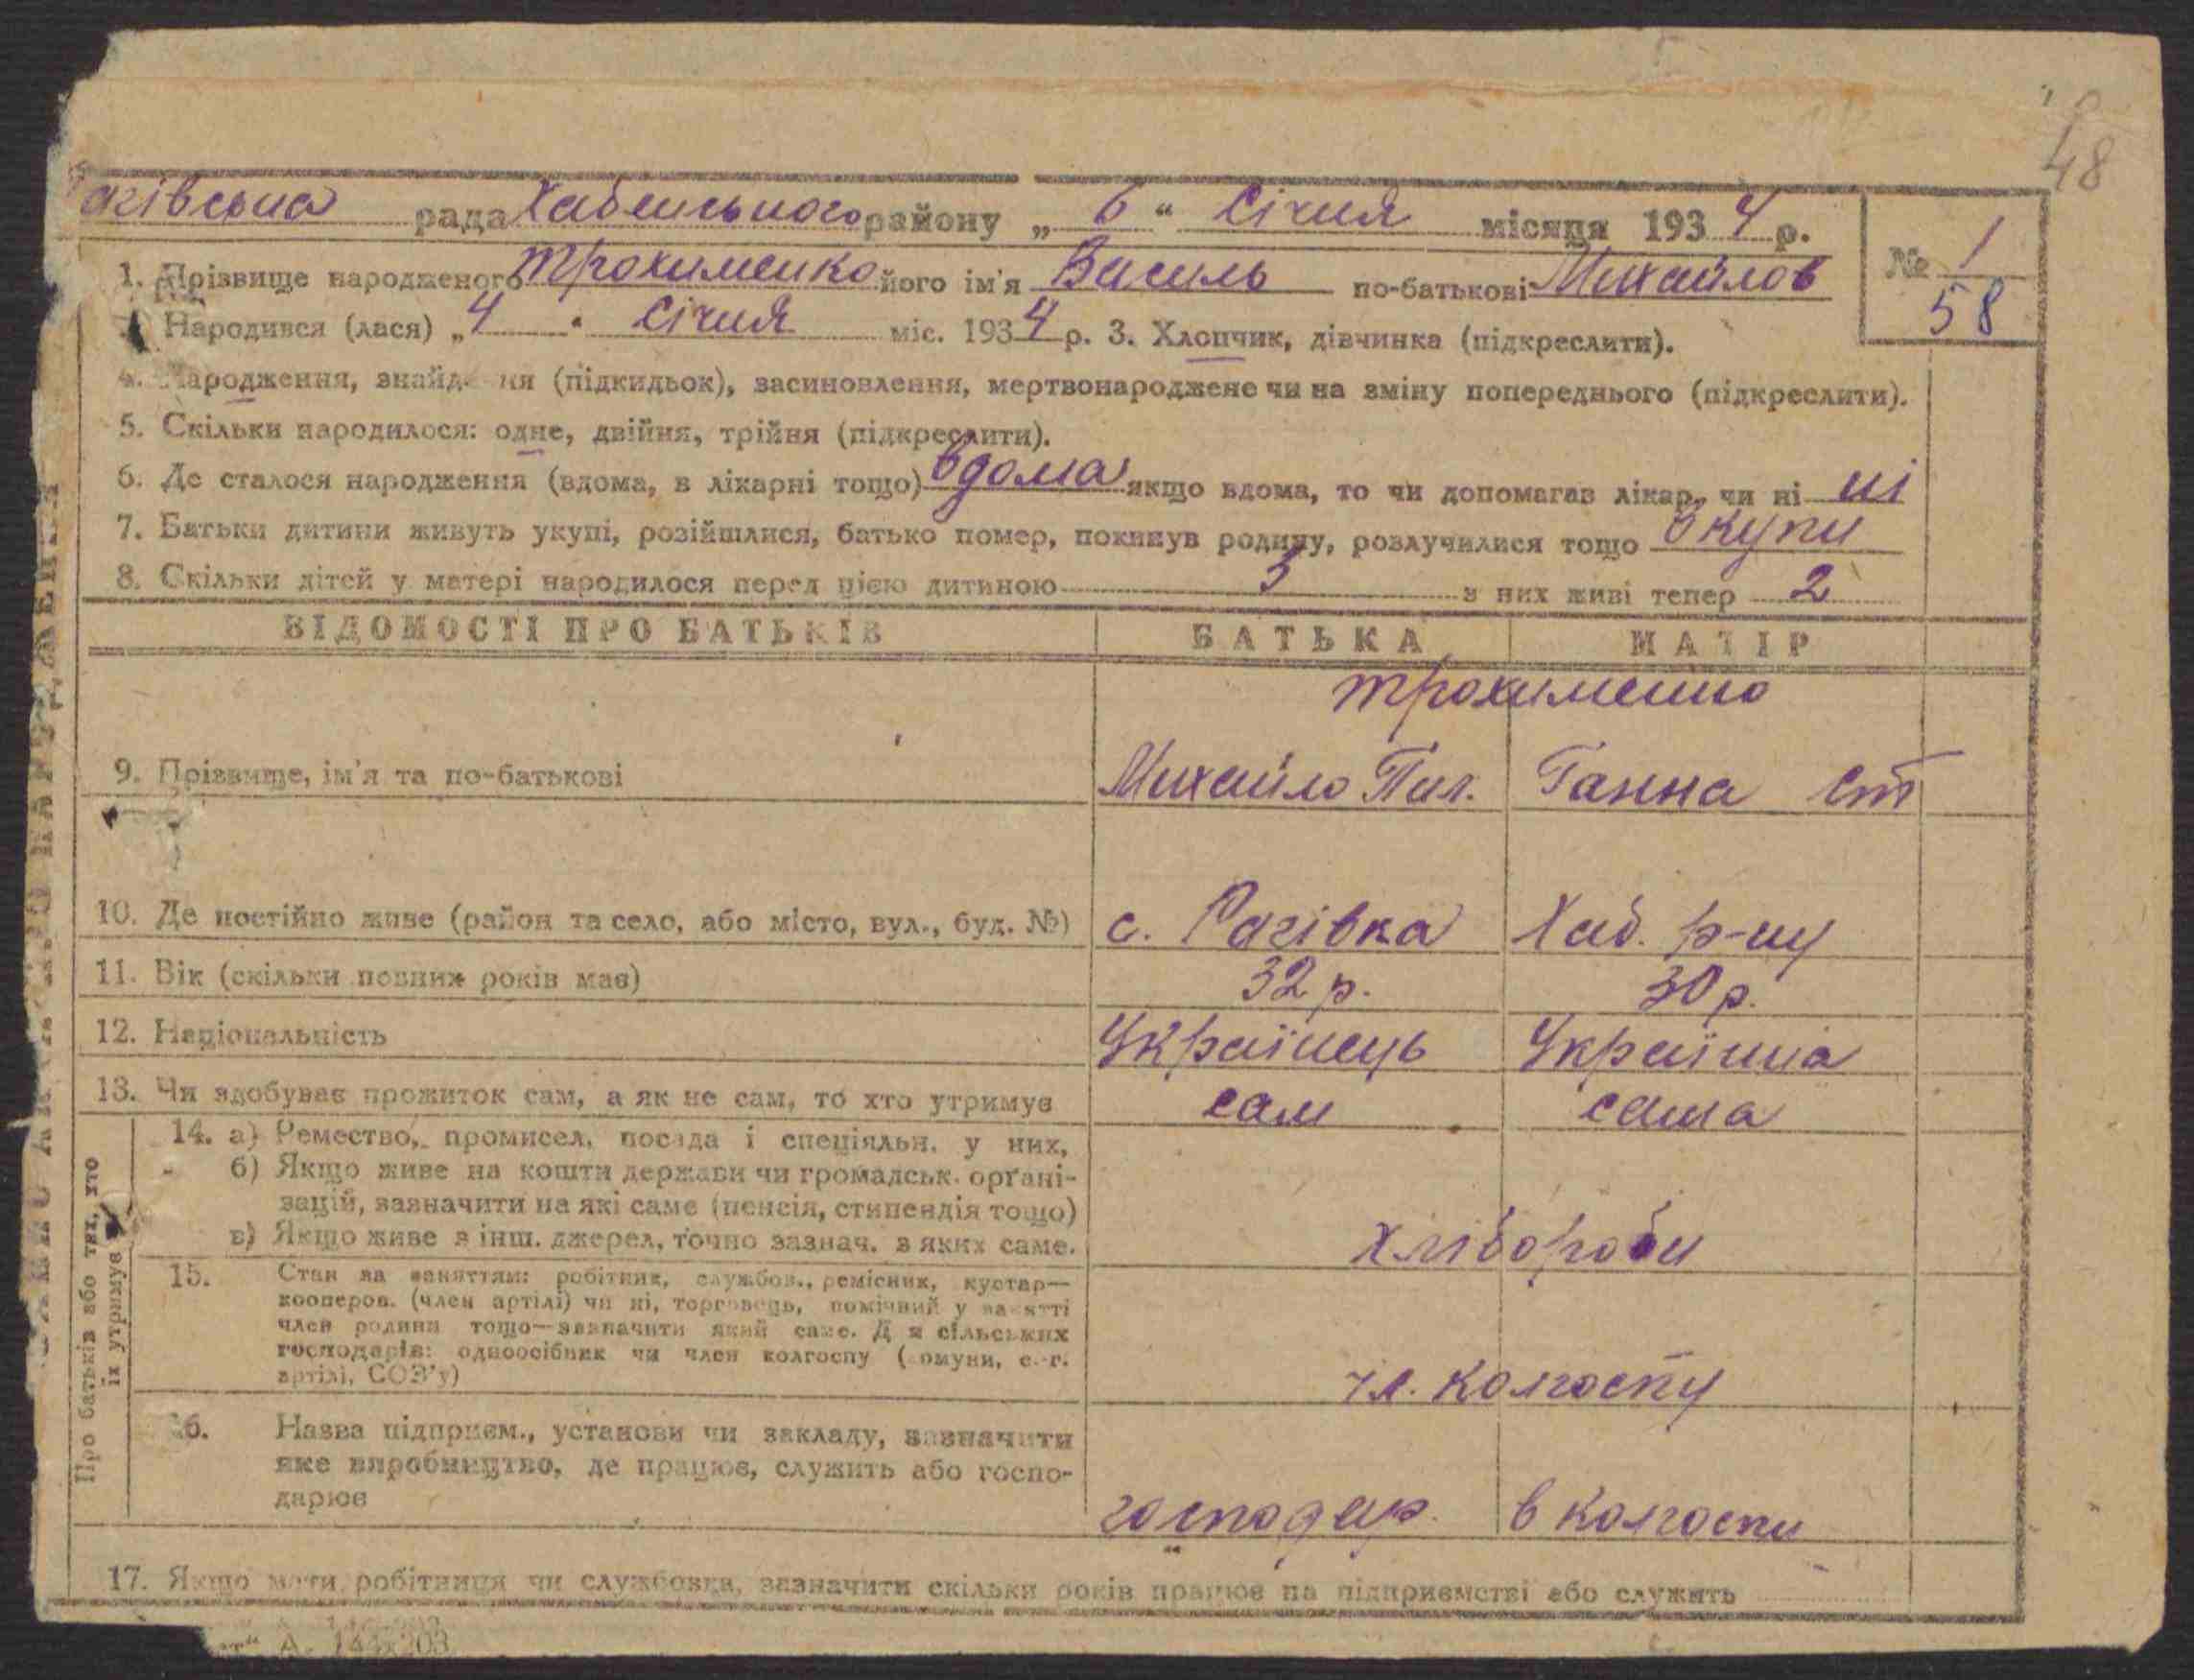 48
агівська рада Хабенського району „ 6 “ Січня місяця 1934 р.
№ 1
58
1. Прізвище народженого Трохименко його ім'я Василь по-батькові Михайлов
Народився (лася) „4 “ Січня міс. 1934 р. 3. Хлопчик, дівчинка (підкреслити).
4. Народження, знайдення (підкидьок), засиновлення, мертвонароджене чи на зміну попереднього (підкреслити).
5. Скільки народилося: одне, двійня, трійня (підкреслити).
6. Де сталося народження (вдома, в лікарні тощо) вдома якщо вдома, то чи допомагав лікар, чи ні ні
7. Батьки дитини живуть укупі, розійшлися, батько помер, покинув родину, розлучилися тощо вкупи
8. Скільки дітей у матері народилося перед цією дитиною 3 з них живі тепер 2
ВІДОМОСТІ ПРО БАТЬКІВ БАТЬКА МАТІР
Трохименко
9. Прізвище, ім'я та по-батькові Михайло Пил. Ганна Ст
10. Де постійно живе (район та село, або місто, вул., буд. №) с. Рагівка Хаб. р-ну
11. Вік (скільки повних років має) 32 р. 30 р.
12. Національність Українець Українка
13. Чи здобуває прожиток сам, а як не сам, то хто утримує сам сама
Про батьків або тих, хто їх утримує
14. а) Ремество, промисел, посада і спеціяльн. у них,
б) Якщо живе на кошти держави чи громадськ. орґані-
зацій, зазначити на які саме (пенсія, стипендія тощо)
в) Якщо живе з інш. джерел, точно зазнач. з яких саме.
хлібороби
15. Стан за заняттям: робітник, службов., ремісник, кустар—
кооперов. (член артілі) чи ні, торговець, помічний у занятті
член родини тощо—зазначити який саме. Для сільських
господарів: одноосібник чи член колгоспу (комуни, с.-г.
артілі, СОЗ'у)
чл. колгоспу
16. Назва підприєм., установи чи закладу, зазначити
яке виробництво, де працює, служить або госпо-
дарює
господар. в колгоспи
17. Якщо мати робітниця чи службовка, зазначити скільки років працює на підприємстві або служить
А. 144х203